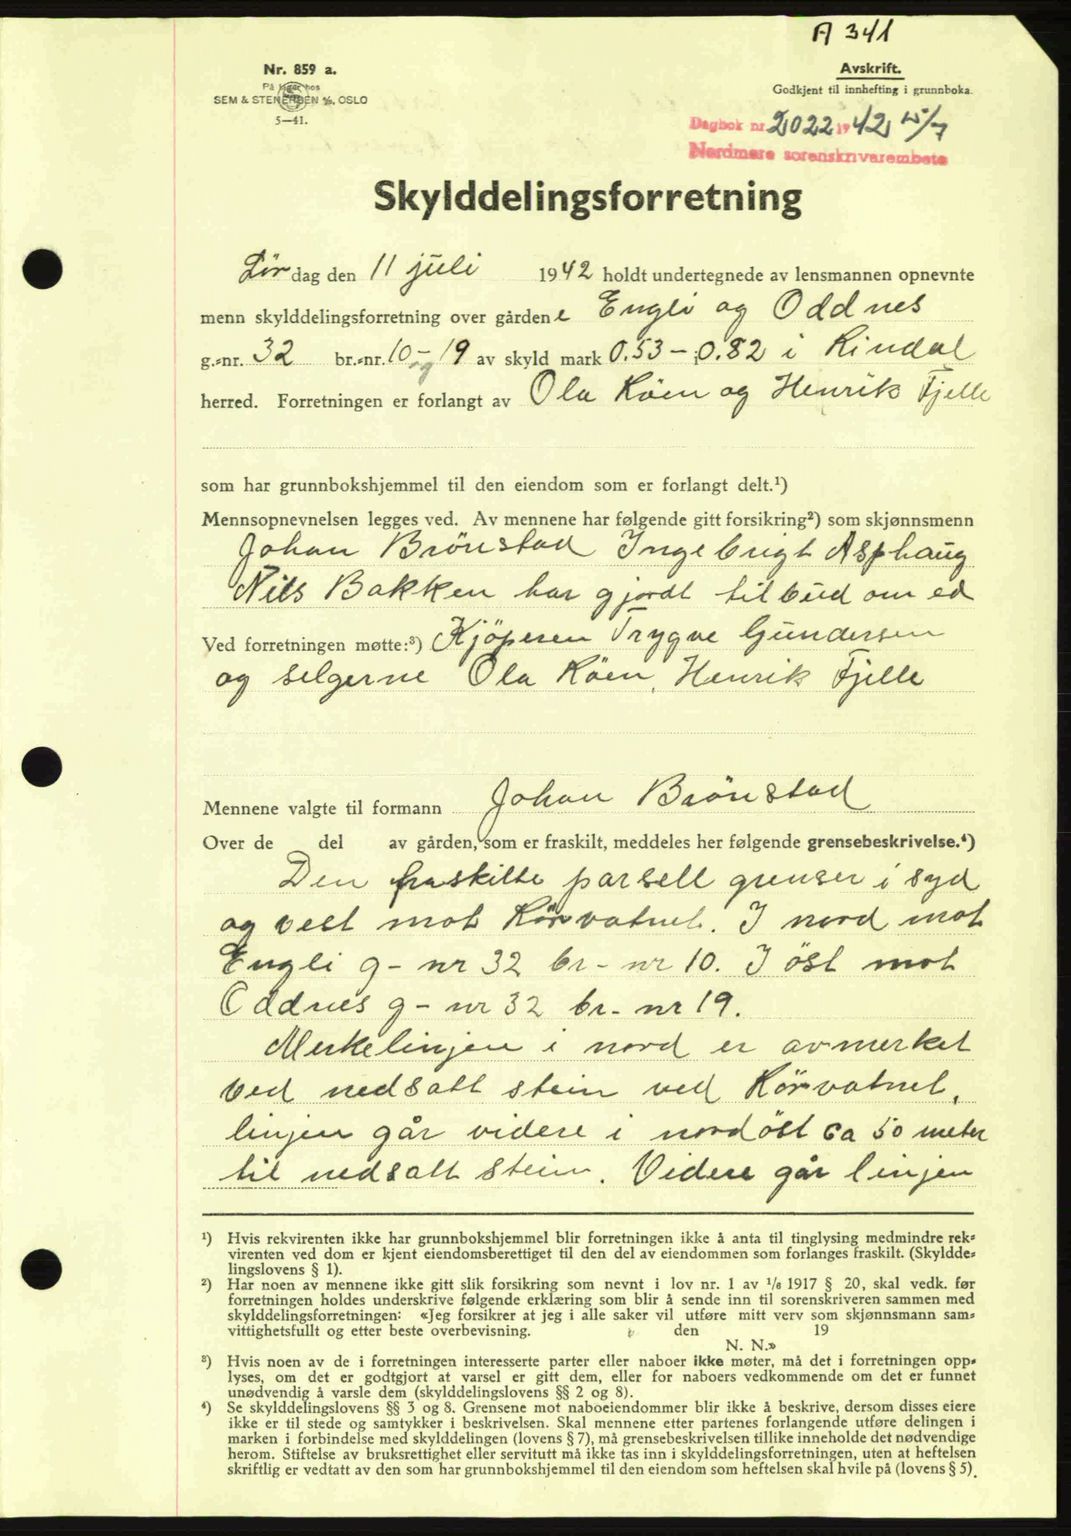 A 341
Nr. 859 a.
På lager hos
SEM & STENERSEN A/S, OSLO
5—41.
Avskrift.
Godkjent til innhefting i grunnboka.
Dagbok nr. 2022 1942 15/7
Nordmøre sorenskrivarembete
Skylddelingsforretning
Lørdag den 11 juli 1942 holdt undertegnede av lensmannen opnevnte
menn skylddelingsforretning over gårdene Engli og Oddnes
g.-nr. 32 br.-nr. 10 og 19 av skyld mark 0.53 - 0.82 i Rindal
herred. Forretningen er forlangt av Ola Röen og Henrik Fjelle
som har grunnbokshjemmel til den eiendom som er forlangt delt.¹)
Mennsopnevnelsen legges ved. Av mennene har følgende gitt forsikring²) som skjønnsmenn
Johan Brönstad Ingebrigt Asphaug
Nils Bakken har gjordt tilbud om ed
Ved forretningen møtte:³) Kjöperen Trygve Gundersen
og selgerne Ola Röen, Henrik Fjelle
Mennene valgte til formann Johan Brönstad
Over de del av gården, som er fraskilt, meddeles her følgende grensebeskrivelse.⁴)
Den fraskilte parsell grenser i syd
og vest mot Körvatnet. I nord mot
Engli g-nr 32 br-nr 10. I öst mot
Oddnes g-nr 32 br-nr 19.
Merkelinjen i nord er avmerket
ved nedsatt stein ved Körvatnet,
linjen går videre i nordöst ca 50 meter
til nedsatt stein. Videre går linjen
¹) Hvis rekvirenten ikke har grunnbokshjemmel blir forretningen ikke å anta til tinglysing medmindre rek-
virenten ved dom er kjent eiendomsberettiget til den del av eiendommen som forlanges fraskilt. (Skyldde-
lingslovens § 1).
²) Har noen av mennene ikke gitt slik forsikring som nevnt i lov nr. 1 av ¹/₈ 1917 § 20, skal vedk. før
forretningen holdes underskrive følgende erklæring som blir å sende inn til sorenskriveren sammen med
skylddelingsforretningen: «Jeg forsikrer at jeg i alle saker vil utføre mitt verv som skjønnsmann sam-
vittighetsfullt og etter beste overbevisning. den 19
N. N.»
³) Hvis noen av de i forretningen interesserte parter eller naboer ikke møter, må det i forretningen opp-
lyses, om det er godtgjort at varsel er gitt dem, eller for naboers vedkommende om det er funnet
unødvendig å varsle dem (skylddelingslovens §§ 2 og 8).
⁴) Se skylddelingslovens §§ 3 og 8. Grensene mot naboeiendommer blir ikke å beskrive, dersom disses eiere
ikke er til stede og samtykker i beskrivelsen. Skal mennene etter partenes forlangende utføre delingen i
marken i forbindelse med skylddelingen (lovens § 7), må grensebeskrivelsen tillike inneholde det nødvendige
herom. Stiftelse av bruksrettighet eller servitutt må ikke tas inn i skylddelingsforretningen, uten at heftelsen
skriftlig er vedtatt av den som har grunnbokshjemmel til den eiendom som heftelsen skal hvile på (lovens § 5).